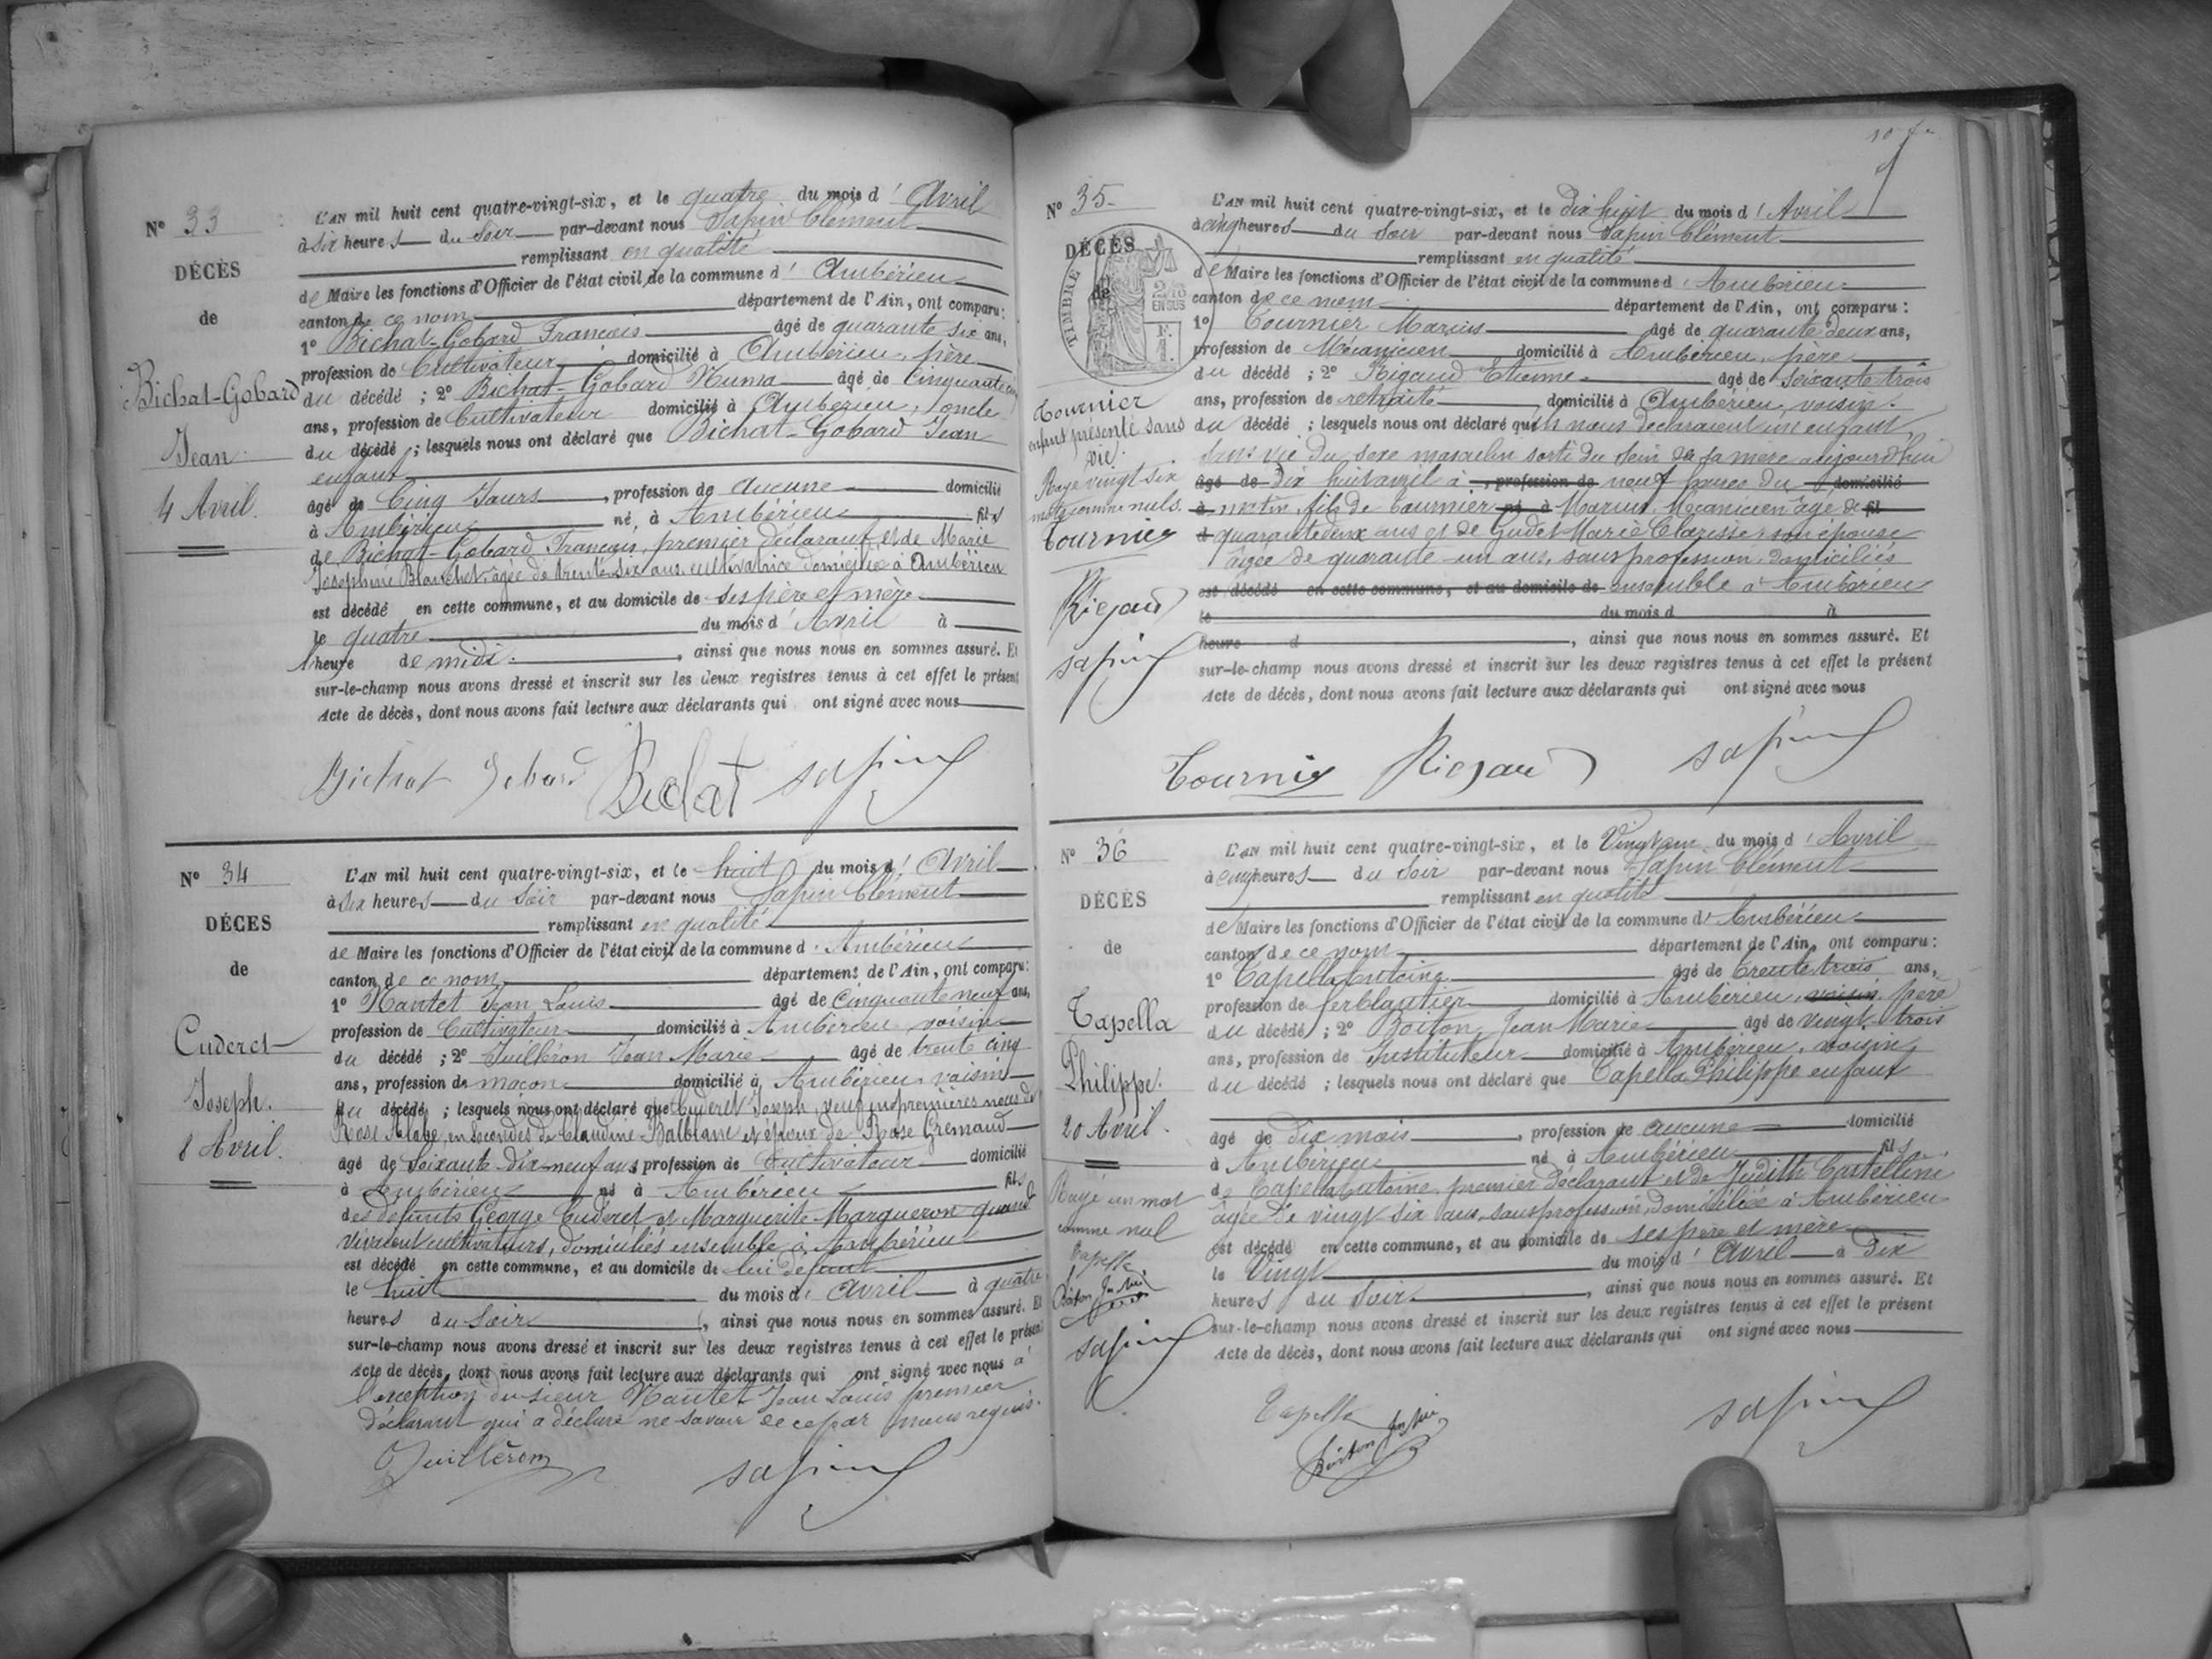 N° 33
DÉCÈS
de
Bichat-Gobard
Jean
4 Avril.
L'AN mil huit cent quatre-vingt-six, et le quatre du mois d' Avril
à six heures du Soir par-devant nous Sapin Clément
remplissant en qualité
de Maire les fonctions d'Officier de l'état civil de la commune d' Ambérieu
canton de ce nom département de l'Ain, ont comparu:
1° Bichat-Gobard François âgé de quarante six ans,
profession de Cultivateur domicilié à Ambérieu, père
du décédé ; 2° Bichat-Gobard Numa âgé de Cinquante
ans, profession de Cultivateur domicilié à Ambérieu, oncle
du décédé ; lesquels nous ont déclaré que Bichat-Gobard Jean
enfant
âgé de Cinq Jours, profession de aucune domicilié
à Ambérieu né à Ambérieu fils
de Bichat-Gobard François, premier déclarant et de Marie
Joséphine Blanchet, âgée de trente six ans cultivatrice domiciliée à Ambérieu
est décédé en cette commune, et au domicile de ses père et mère
le quatre du mois d' Avril à
heure de midi, ainsi que nous nous en sommes assuré. Et
sur-le-champ nous avons dressé et inscrit sur les deux registres tenus à cet effet le présent
Acte de décès, dont nous avons fait lecture aux déclarants qui ont signé avec nous
Bichat Gobard Bichat Sapin
N° 34
DÉCES
de
Cuderet
Joseph.
8 Avril.
L'AN mil huit cent quatre-vingt-six, et le huit du mois d' Avril
à six heures du Soir par-devant nous Sapin Clément
remplissant en qualité
de Maire les fonctions d'Officier de l'état civil de la commune d' Ambérieu
canton de ce nom département de l'Ain, ont comparu:
1° Nantet Jean Louis âgé de Cinquante neuf ans,
profession de Cultivateur domicilié à Ambérieu voisin
du décédé ; 2° Guilleron Jean Marie âgé de trente cinq
ans, profession de maçon domicilié à Ambérieu, voisin
du décédé ; lesquels nous ont déclaré que Cuderet Joseph, veuf en premières noces de
Rose en Secondes de Claudine Balblanc et époux de Rose Gremaud
âgé de Soixante dix-neuf ans profession de Cultivateur domicilié
à Ambérieu né à Ambérieu fils
des défunts George Cuderet et Marguerite Margueron quand
vivaient cultivateurs, domiciliés ensemble à Ambérieu
est décédé en cette commune, et au domicile de lui défunt
le huit du mois d' Avril à quatre
heures du Soir, ainsi que nous nous en sommes assuré. Et
sur-le-champ nous avons dressé et inscrit sur les deux registres tenus à cet effet le présent
Acte de décès, dont nous avons fait lecture aux déclarants qui ont signé avec nous à
l'exception du sieur Nantet Jean Louis premier
déclarant qui a déclaré ne savoir de ce par nous requis.
Guilleron Sapin
N° 35
DÉCÈS
de
TIMBRE
2/10
EN SUS
Tournier
enfant présenté sans
vie.
Rayé vingt six
mots comme nuls.
Tournier
Rigaud
Sapin
L'AN mil huit cent quatre-vingt-six, et le dix huit du mois d' Avril
à cinq heures du Soir par-devant nous Sapin Clément
remplissant en qualité
de Maire les fonctions d'Officier de l'état civil de la commune d' Ambérieu
canton de ce nom département de l'Ain, ont comparu:
1° Tournier Marius âgé de quarante deux ans,
profession de Mécanicien domicilié à Ambérieu, père
du décédé ; 2° Rigaud Etienne âgé de Soixante trois
ans, profession de retraité domicilié à Ambérieu, voisin.
du décédé ; lesquels nous ont déclaré qu'ils nous déclaraient un enfant
sans vie du sexe masculin sorti du sein de sa mère aujourd'hui
âgé de Dix huit avril à , profession de neuf heures du domicilié
à matin, fils de Tournier né à Marius, Mécanicien âgé de fil
d quarante deux ans et de Gudet Marie Clarisse son épouse
âgée de quarante-un ans, sans profession, domiciliés
est décédé en cette commune, et au domicile de ensemble à Ambérieu
le du mois d à
heure d , ainsi que nous nous en sommes assuré. Et
sur-le-champ nous avons dressé et inscrit sur les deux registres tenus à cet effet le présent
Acte de décès, dont nous avons fait lecture aux déclarants qui ont signé avec nous
Tournier Rigaud Sapin
N° 36
DÉCÈS
de
Capella
Philippe.
20 Avril.
Rayé un mot
comme nul
Capella
Sapin
L'AN mil huit cent quatre-vingt-six, et le Vingt un du mois d' Avril
à cinq heures du Soir par-devant nous Sapin Clément
remplissant en qualité
de Maire les fonctions d'Officier de l'état civil de la commune d' Ambérieu
canton de ce nom département de l'Ain, ont comparu:
1° Capella Antoine âgé de trente trois ans,
profession de ferblantier domicilié à Ambérieu, voisin, père
du décédé ; 2° Boiton Jean Marie âgé de vingt-trois
ans, profession de Instituteur domicilié à Ambérieu, voisin
du décédé ; lesquels nous ont déclaré que Capella Philippe enfant
âgé de dix mois, profession de aucune domicilié
à Ambérieu né à Ambérieu fils
de Capella Antoine, premier déclarant et de Judith Castellini
âgée de vingt-six ans, sans profession, domiciliée à Ambérieu
est décédé en cette commune, et au domicile de ses père et mère
le Vingt du mois d' Avril à Dix
heures du Soir, ainsi que nous nous en sommes assuré. Et
sur-le-champ nous avons dressé et inscrit sur les deux registres tenus à cet effet le présent
Acte de décès, dont nous avons fait lecture aux déclarants qui ont signé avec nous
Capella Boiton Sapin